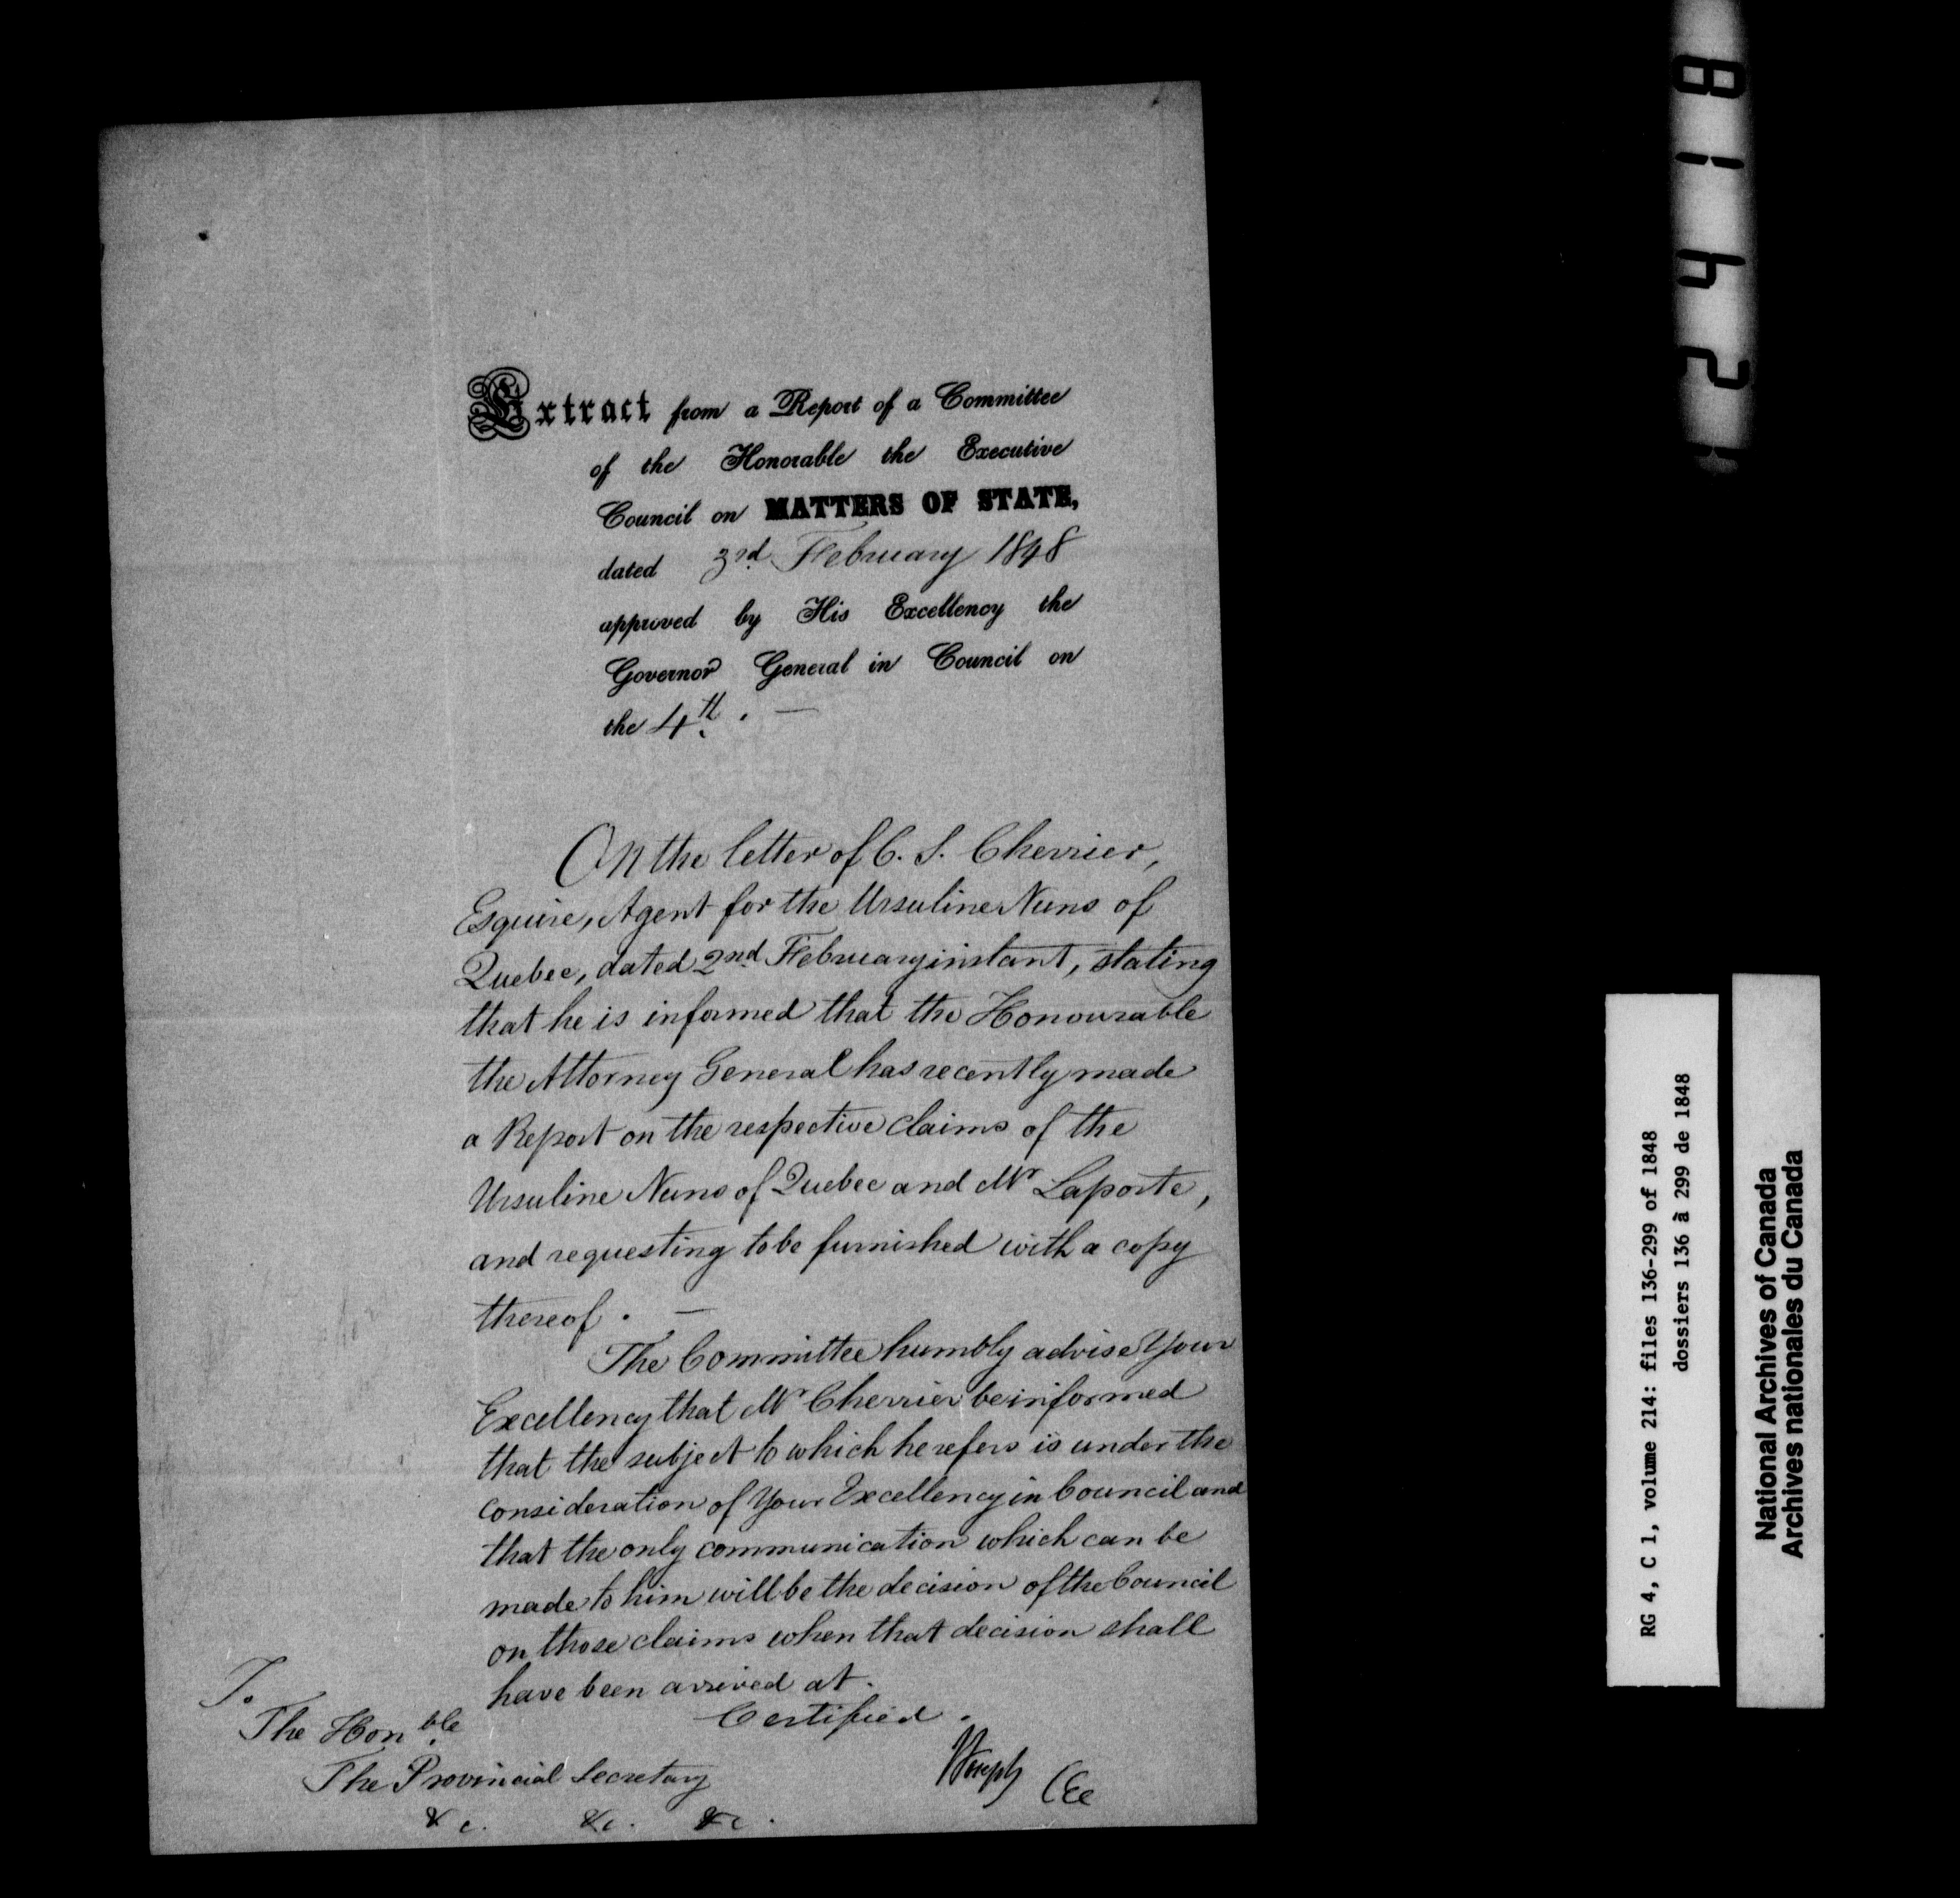 Extract from a Report of a Committee
of the Honorable the Executive
Council on MATTERS OF STATE,
dated 3rd. February 1848
approved by His Excellency the
Governor General in Council on
the 4th. —
On the letter of C. S. Cherrier,
Esquire, Agent for the Ursuline Nuns of
Quebec, dated 2nd. February instant, stating
that he is informed that the Honourable
the Attorney General has recently made
a Report on the respective claims of the
Ursuline Nuns of Quebec and Mr Laporte,
and requesting to be furnished with a copy
thereof. —
The Committee humbly advise Your
Excellency that Mr Cherrier be informed
that the subject to which he refers is under the
consideration of Your Excellency in Council and
that the only communication which can be
made to him will be the decision of the Council
on those claims when that decision shall
have been arrived at.
Certified.
To
The Honble.
The Provincial Secretary
&c. &c. &c.
Joseph CEC
8142
RG 4, C 1, volume 214: files 136-299 of 1848
dossiers 136 à 299 de 1848
National Archives of Canada
Archives nationales du Canada